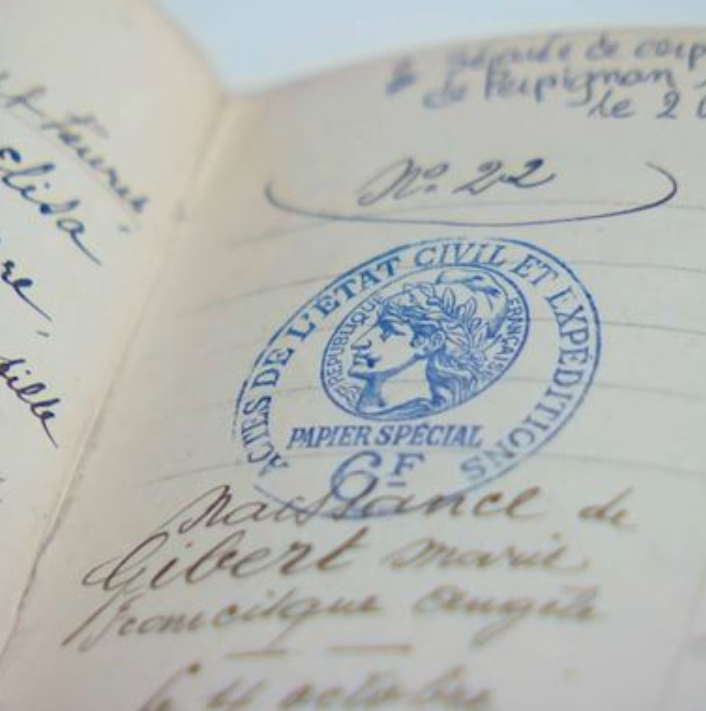 elisa
re,
fille
de corp
de Perpignan
le 2
N° 22
ACTES DE L'ÉTAT CIVIL ET EXPÉDITIONS
RÉPUBLIQUE FRANÇAISE
PAPIER SPÉCIAL
6F
Naissance de
Gibert Marie
Francisque Angèle
le 11 octobre